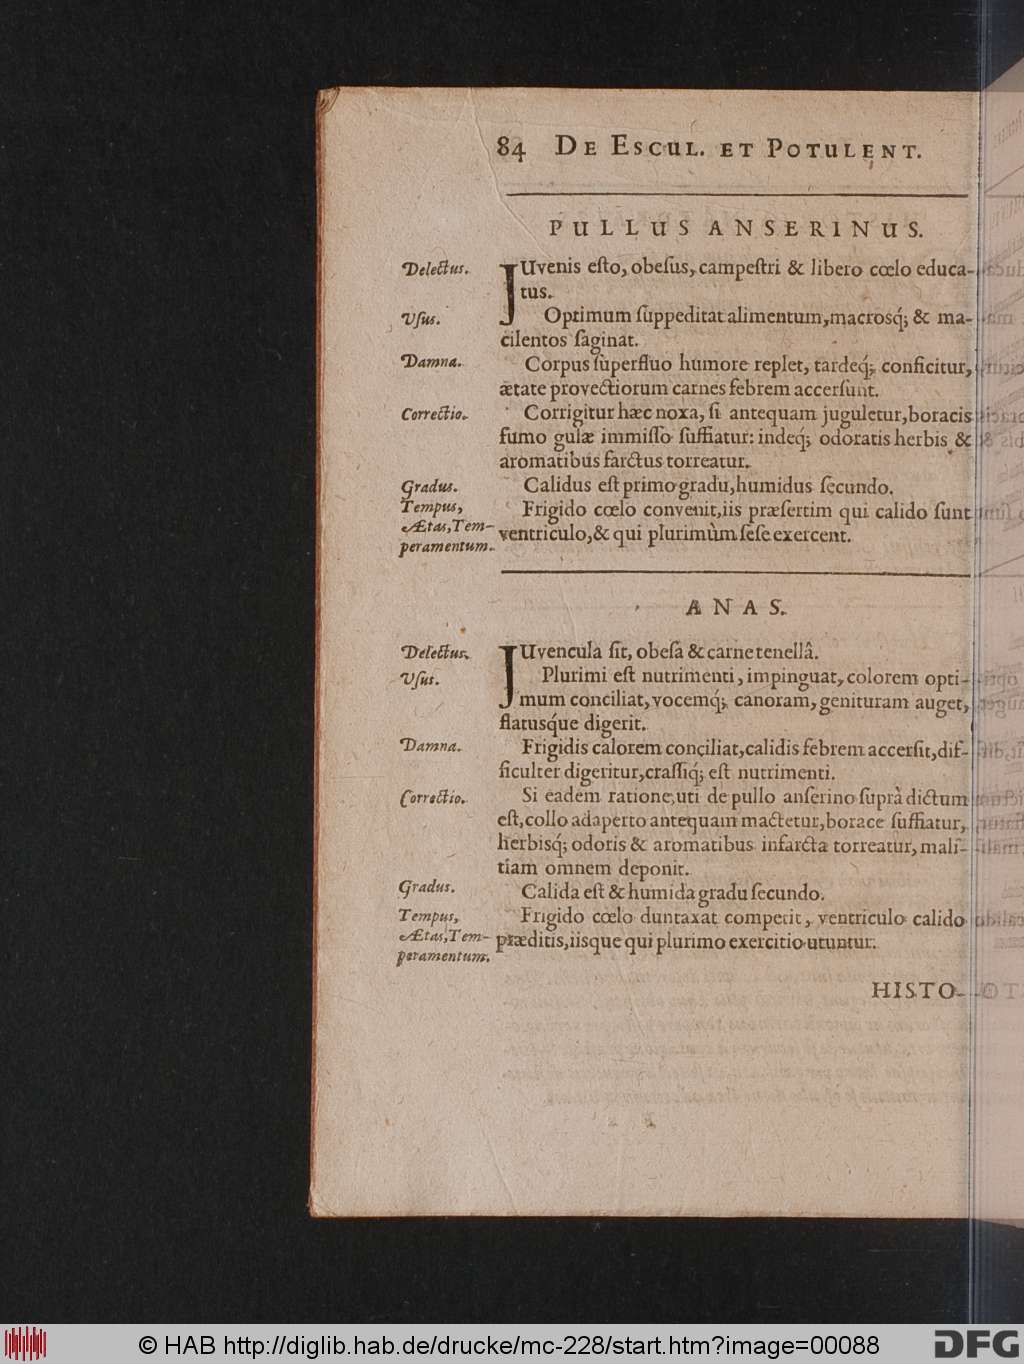 84 DE ESCUL. ET POTULENT.
PULLUS ANSERINUS.
Delectus. JUvenis eſto, obeſus, campeſtri & libero cœlo educa-
tus.
Uſus. Optimum ſuppeditat alimentum, macrosq́; & ma-
cilentos ſaginat.
Damna. Corpus ſuperfluo humore replet, tardeq́; conficitur,
ætate provectiorum carnes febrem accerſunt.
Correctio. Corrigitur hæc noxa, ſi antequam juguletur, boracis
fumo gulæ immiſſo ſuffiatur: indeq́; odoratis herbis &
aromatibus farctus torreatur.
Gradus. Calidus eſt primo gradu, humidus ſecundo.
Tempus, Frigido cœlo convenit, iis præſertim qui calido ſunt
Ætas, Tem- ventriculo, & qui plurimùm ſeſe exercent.
peramentum.
ANAS.
Delectus. JUvencula ſit, obeſa & carne tenellâ.
Uſus. Plurimi eſt nutrimenti, impinguat, colorem opti-
mum conciliat, vocemq́; canoram, genituram auget,
flatusq́ue digerit.
Damna. Frigidis calorem conciliat, calidis febrem accerſit, dif-
ficulter digeritur, craſſiq́; eſt nutrimenti.
Correctio. Si eadem ratione, uti de pullo anſerino ſuprà dictum
eſt, collo adaperto antequam mactetur, borace ſuffiatur,
herbisq́; odoris & aromatibus infarcta torreatur, mali-
tiam omnem deponit.
Gradus. Calida eſt & humida gradu ſecundo.
Tempus, Frigido cœlo duntaxat competit, ventriculo calido
Ætas, Tem- præditis, iisque qui plurimo exercitio utuntur.
peramentum.
HISTO-
© HAB http://diglib.hab.de/drucke/mc-228/start.htm?image=00088 DFG